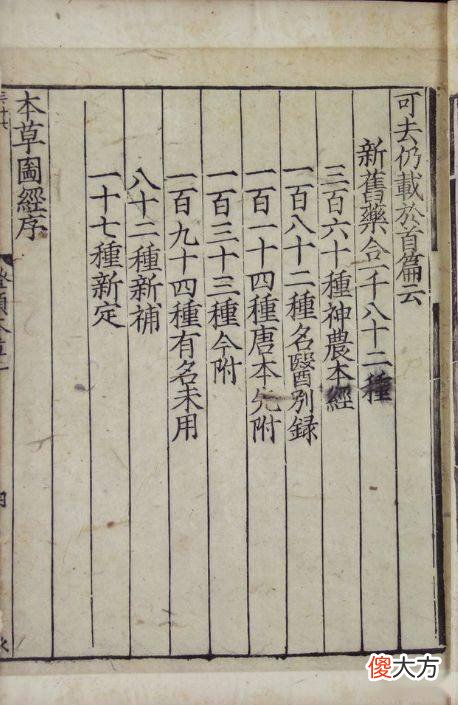 可去仍載於首篇云
新舊藥合一千八十二種
三百六十種神農本經
一百八十二種名醫別録
一百一十四種唐本先附
一百三十三種今附
一百九十四種有名未用
八十二種新補
一十七種新定
本草圖經序
傻大方